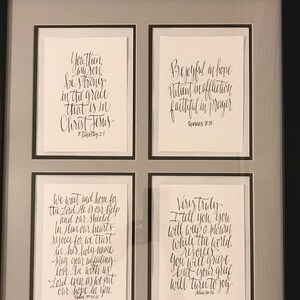 You then,
my son,
be strong
in the grace
that is in
Christ Jesus
2 Timothy 2:1
Be joyful in hope
Patient in affliction
faithful in prayer
Romans 12:12
We wait and hope for
the Lord. He is our help
and our shield
in Him our hearts
rejoice for we trust
in his holy name
May your unfailing
love be with us
Lord even as we put
our hope in you
Psalm
Very truly
I tell you, you
will weep & mourn
while the world
rejoices
You will grieve
but your grief
will turn to joy
John 16:20